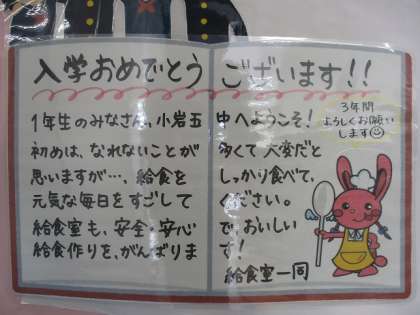 入学おめでとうございます!!
3年間
よろしくお願い
します☺
1年生のみなさん、小岩五中へようこそ!
初めは、なれないことが多くて大変だと
思いますが…、給食をしっかり食べて、
元気な毎日をすごしてください。
給食室も、安全・安心で、おいしい
給食作りを、がんばります!
給食室一同